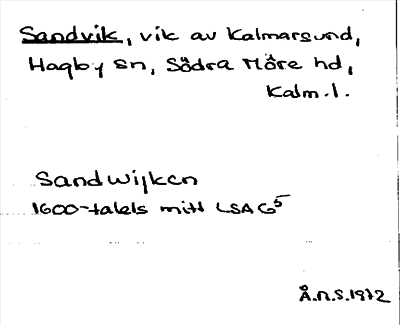 Sandvik, vik av Kalmarsund,
Hagby sn, Södra Möre hd,
Kalm. l.
Sandwijken
1600-talets mitt LSA G5
Å.N.S. 1972